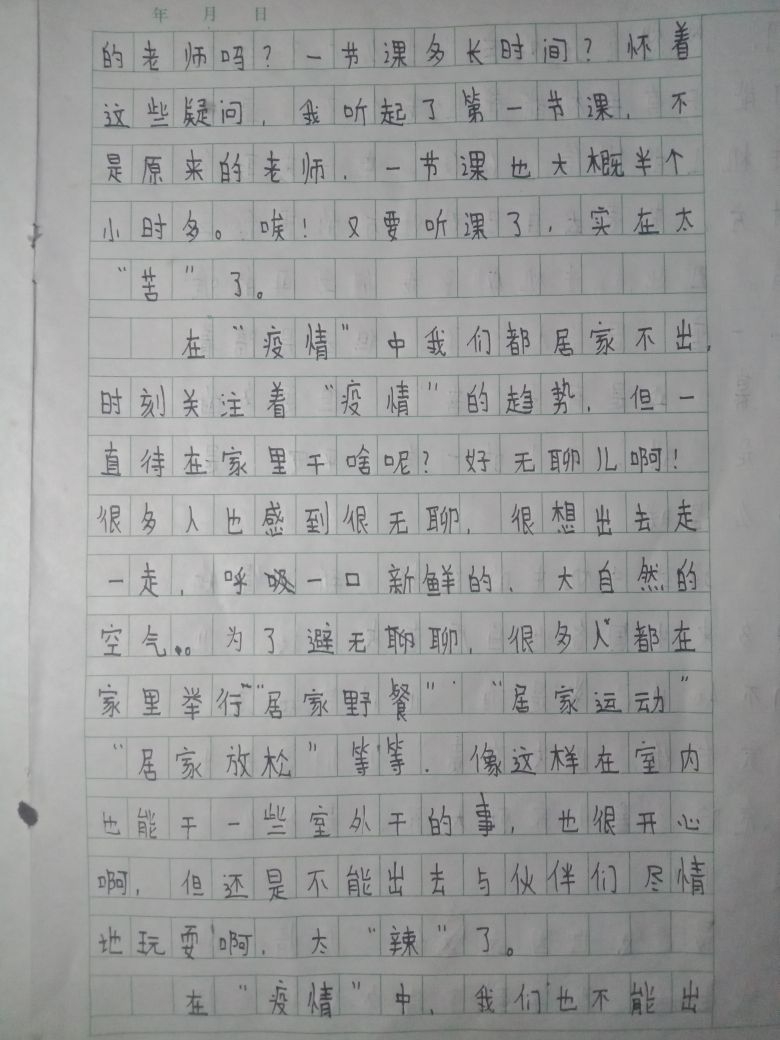 年 月 日
的老师吗？一节课多长时间？怀着
这些疑问，我听起了第一节课，不
是原来的老师，一节课也大概半个
小时多。唉！又要听课了，实在太
“苦”了。
在“疫情”中我们都居家不出，
时刻关注着“疫情”的趋势，但一
直待在家里干啥呢？好无聊儿啊！
很多人也感到很无聊，很想出去走
一走，呼吸一口新鲜的，大自然的
空气。为了避无聊聊，很多人都在
家里举行“居家野餐”“居家运动”
“居家放松”等等，像这样在室内
也能干一些室外干的事，也很开心
啊，但还是不能出去与伙伴们尽情
地玩耍啊，太“辣”了。
在“疫情”中，我们也不能出